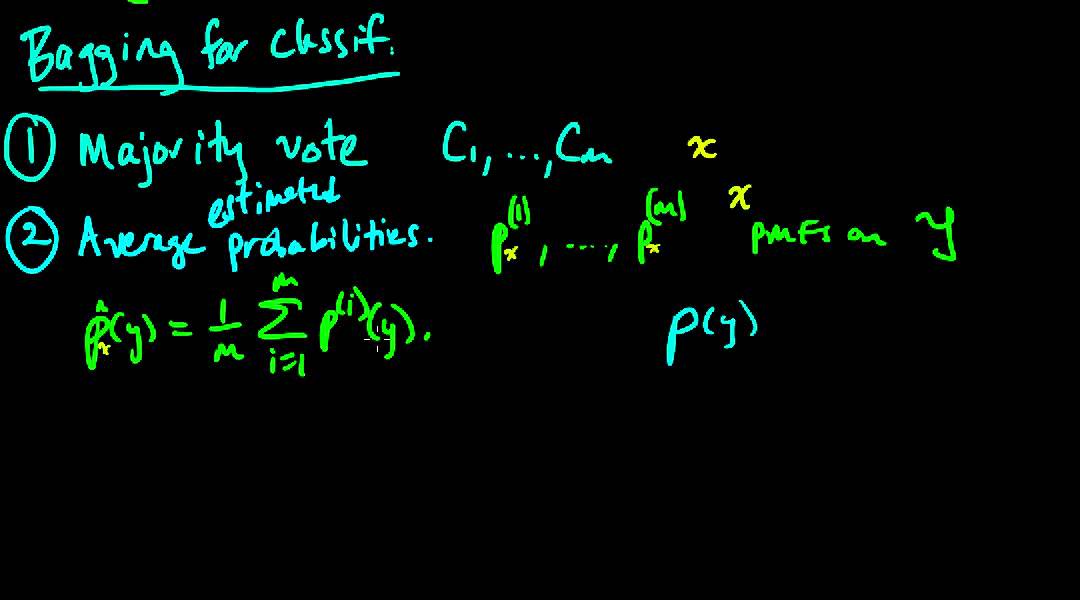 Bagging for classif.
① Majority vote C₁, ..., Cₘ x
② Average estimated probabilities. pₓ⁽¹⁾, ..., pₓ⁽ᵐ⁾ x PMFs on Y
p̂ₓ(y) = 1/m ∑ᵢ₌₁ᵐ p⁽ⁱ⁾(y). p(y)